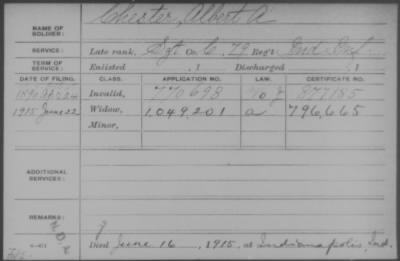 NAME OF SOLDIER: Chester, Albert A
SERVICE: Late rank, Sgt Co. C, 79 Reg't Ind Inf
TERM OF SERVICE: Enlisted , 1 Discharged , 1
DATE OF FILING. CLASS. APPLICATION NO. LAW. CERTIFICATE NO.
1890 24 Invalid, 770698 877185
1915 June 22 Widow, 1,049,201 a 796,665
Minor,
ADDITIONAL SERVICES:
REMARKS:
Died June 16, 1915, at Indianapolis, Ind.